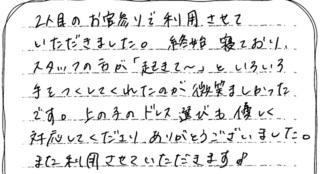 2人目のお宮参りで利用させて
いただきました。終始寝ており、
スタッフの方が「起きて〜」といろいろ
手をつくしてくれたのが微笑ましかった
です。上の子のドレス選びも優しく
対応してくださり ありがとうございました。
また利用させていただきます♪